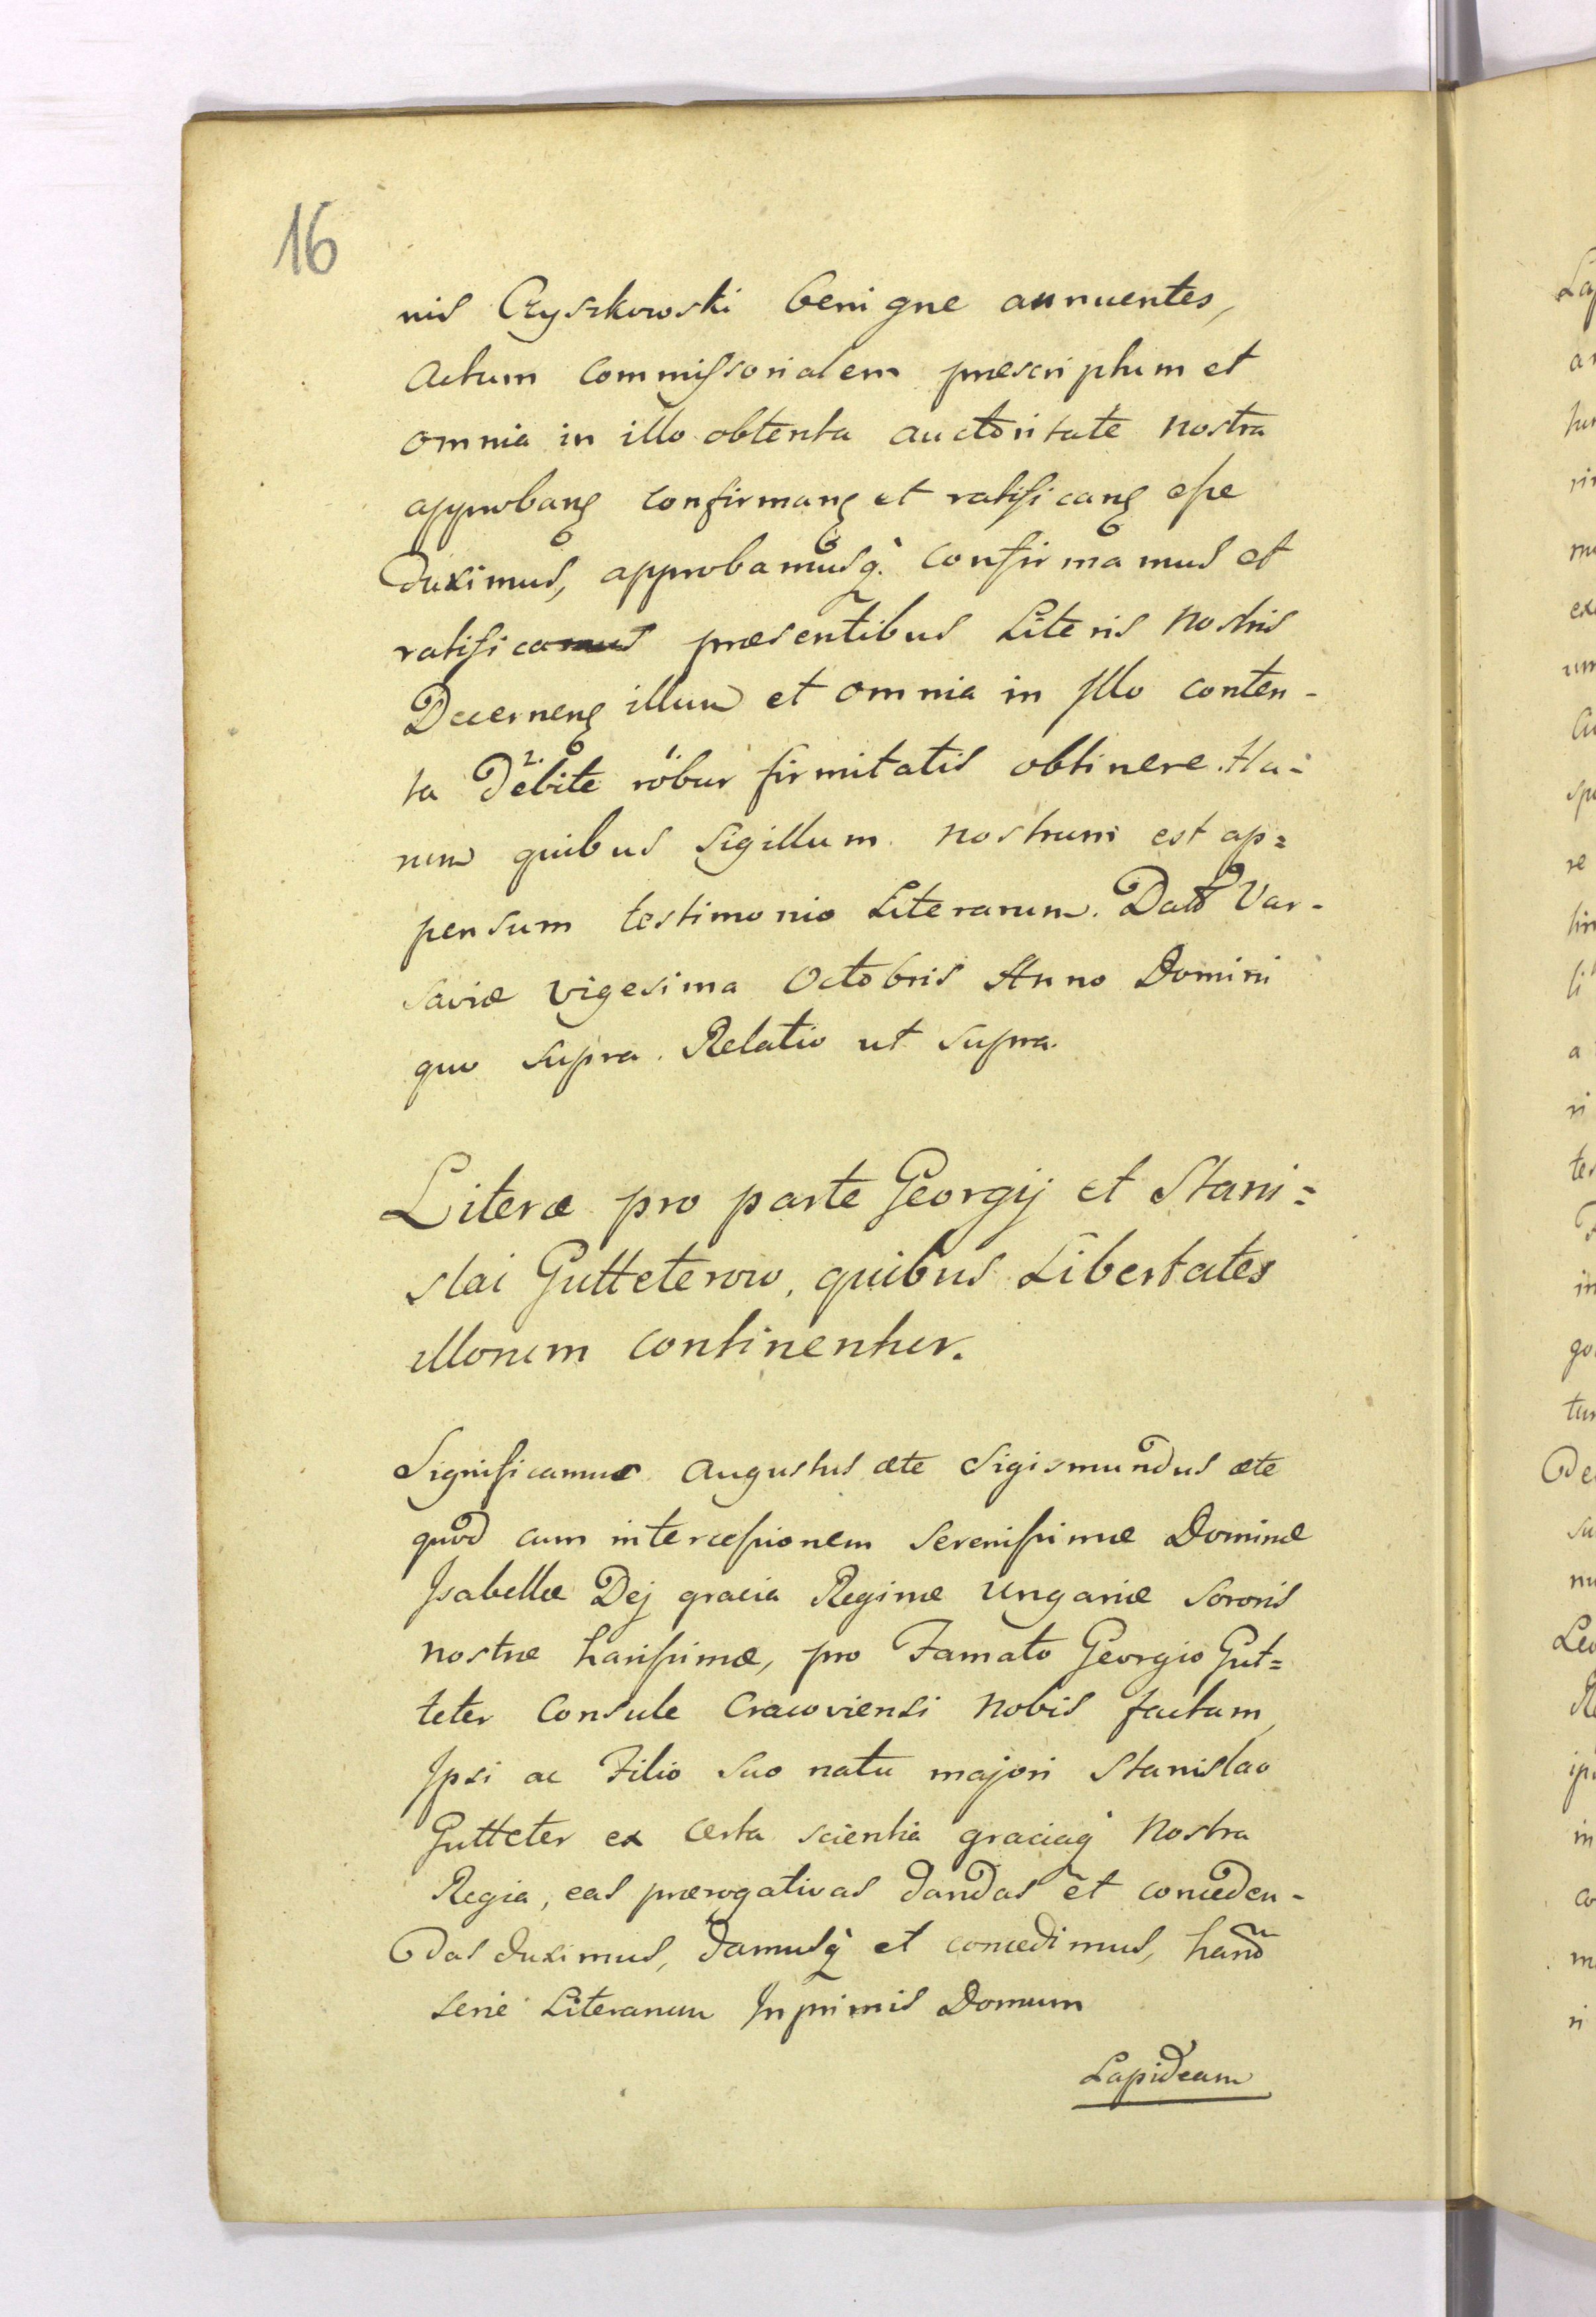 16
nis Czyszkowski benigne annuentes,
Actum commissorialem præscriptum et
omnia in illo obtenta auctoritate nostra
approbanḍ confirmanḍ et ratificanḍ esse
duximus, approbamusq̀. confirmamus et
ratificamus præsentibus Literis nostris
Decernenḍ illum et omnia in Jllo conten-
ta Debite robur firmitatis obtinere. Ha-
rum quibus Sigillum nostrum est ap=
pensum testimonio Literarum. Datt Var-
saviæ vigesima Octobris Anno Domini
quo supra. Relatio ut supra.
Literæ pro parte Georgij et Stani=
slai Gutteterow, quibus Libertates
illorum continentur.
Significamus Augustus æte Sigismundus æte
quod cum intercessionem Serenissimæ Dominæ
Jsabellæ Dej gracia Reginæ Ungariæ Sororis
nostræ harissimæ, pro Famato Georgio Gut=
teter Consule Cracoviensi nobis factam,
Jpsi ac Filio suo natu majori Stanislao
Gutteter ex certa scientia graciaq̀ nostra
Regia, eas prærogativas dandas et conceden-
das duximus, damusq̀ et concedimus, harũ
serie Literarum Jnprimis Domum
Lapideam